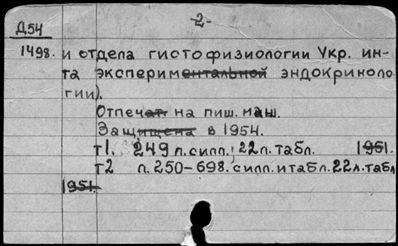 -2-
Д54
1498. и отдела гистофизиологии Укр. ин-
та экспериментальной эндокриноло
гии).
Отпечат на пиш. маш.
Защищена в 1954.
т1. 249 л. силл.; 22л. табл. 1961.
т2 л. 250-698. силл. и табл. 22л. табл
1951.